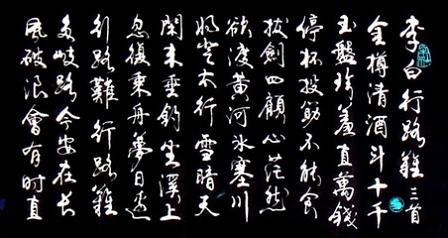 李白行路難三首
金樽清酒斗十千
玉盤珍羞直萬錢
停杯投筯不能食
拔劍四顧心茫然
欲渡黃河冰塞川
將登太行雪暗天
閑來垂釣坐溪上
忽復乘舟夢日邊
行路難行路難
多岐路今安在長
風破浪會有时直